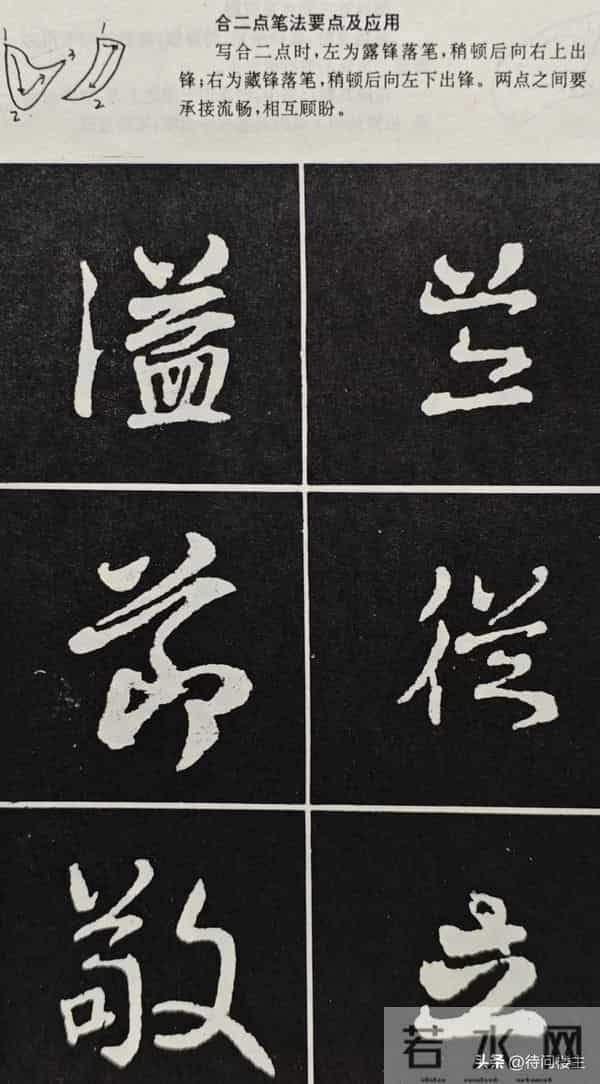 合二点笔法要点及应用
写合二点时,左为露锋落笔,稍顿后向右上出
锋;右为藏锋落笔,稍顿后向左下出锋。两点之间要
承接流畅,相互顾盼。
1 3 1
2 2
溢
节 従
敬 立
若水网
头条 @待问楼主